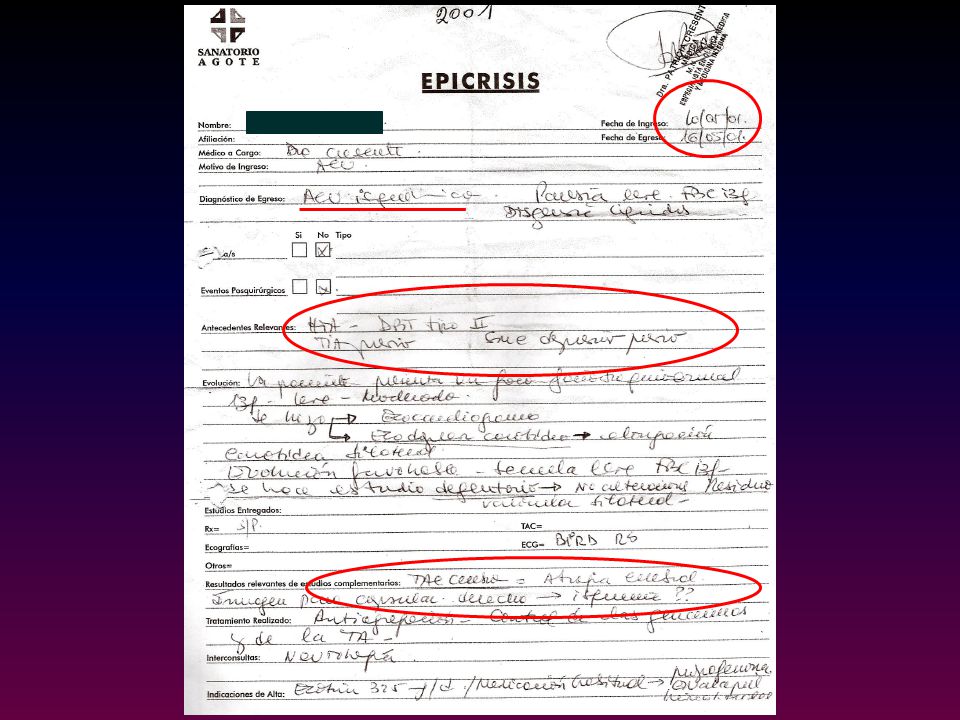 2001
SANATORIO
AGOTE
Dra. PATRICIA CRESENTI
MEDICA
ESPECIALISTA EN CLINICA MEDICA
Y MEDICINA INTERNA
EPICRISIS
Nombre:
Fecha de Ingreso: 10/05/01.
Afiliación:
Fecha de Egreso: 16/05/01.
Médico a Cargo: Dra Cresenti.
Motivo de Ingreso: ACV.
Diagnóstico de Egreso: ACV isquémico. Paresia leve FBC izq
Disfagia líquidos
Si No Tipo
a/s X
Eventos Posquirúrgicos X
Antecedentes Relevantes: HTA - DBT tipo II
TIA previo Sme depresivo previo
Evolución: La paciente presenta un foco
izq - leve - moderado.
Se hizo → Ecocardiograma
→ Ecodoppler carotídeo → elongación
carotídea bilateral
Evolución favorable - secuela leve FBC izq -
Se hace estudio deglutorio → No alteraciones Residuo
valecular bilateral -
Estudios Entregados:
Rx= S/P.
TAC=
Ecografías=
ECG= BIRD RS
Otros=
Resultados relevantes de estudios complementarios: TAC cerebro = Atrofia cerebral.
Imagen capsular derecho → isquemia??
Tratamiento Realizado: Antiagregación - Control de las glucemias
y de la TA -
Interconsultas: Neurología.
Indicaciones de Alta: Ecotrin 325 /Medicación habitual →